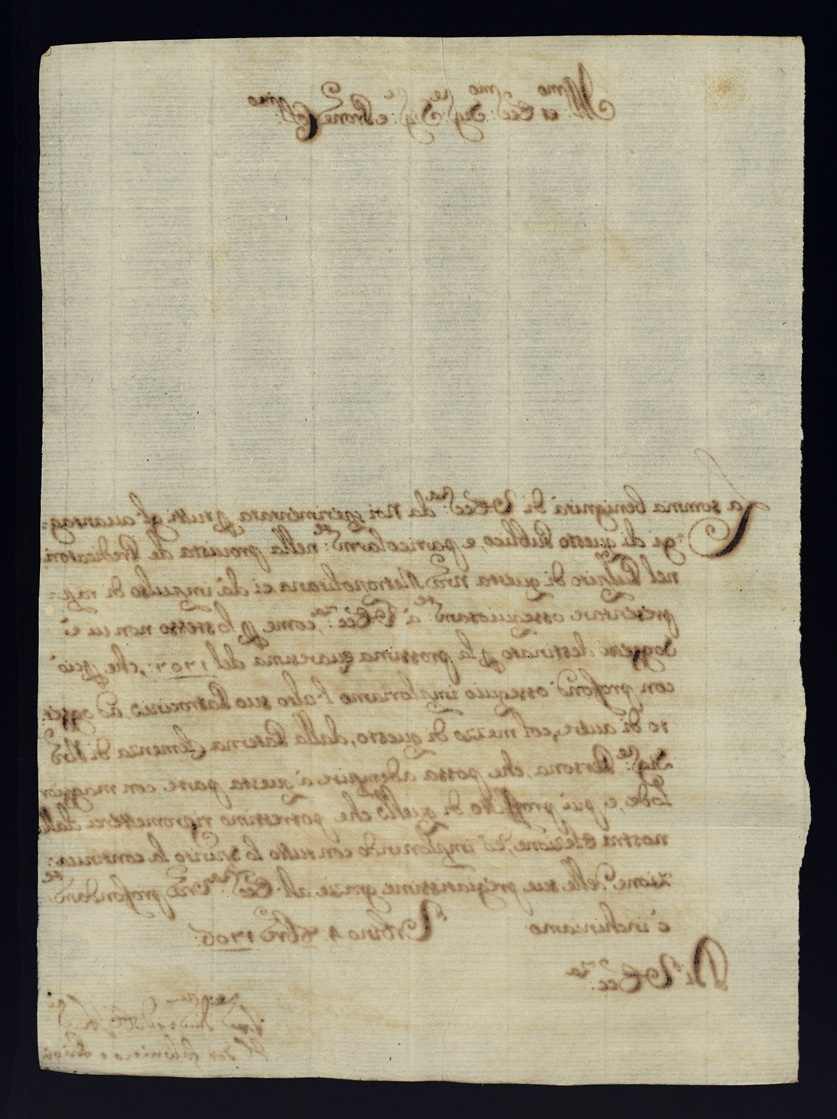 Ill.mo et Ecc.mo Sig.re Sig.re e Prone Col.mo
La somma benignità di V. Ecc.za da noi sperimentata p tutti gl' auantag-
gi di questo Publico, e particolarm.te nella prouista de Predicatori
nel Pulpito di questa nr̃a Metropolitana ci dà impulso di rap-
presentare ossequiosam.te à V. Ecc.za, come p lo stesso non ui è
soggetto destinato p la prossima quaresima del 1707:, che perciò
con profond.o ossequio imploriamo l'alto suo Patrocinio ad effet-
to di auere, col mezzo di questo, dalla Paterna Clemenza di
Sig.re Persona, che possa adempire à questa parte con maggior
Lode, e più proffitto di quello che potressimo riprometterci dalla
nostra elezione, ed implorando con tutto lo spirito la continua-
zione delle sue pregiatissime grazie all' Ecc.za Vr̃a profondam.te
c'inchiniamo Urbino 4. 8bre 1706.
Di V. Ecc.za